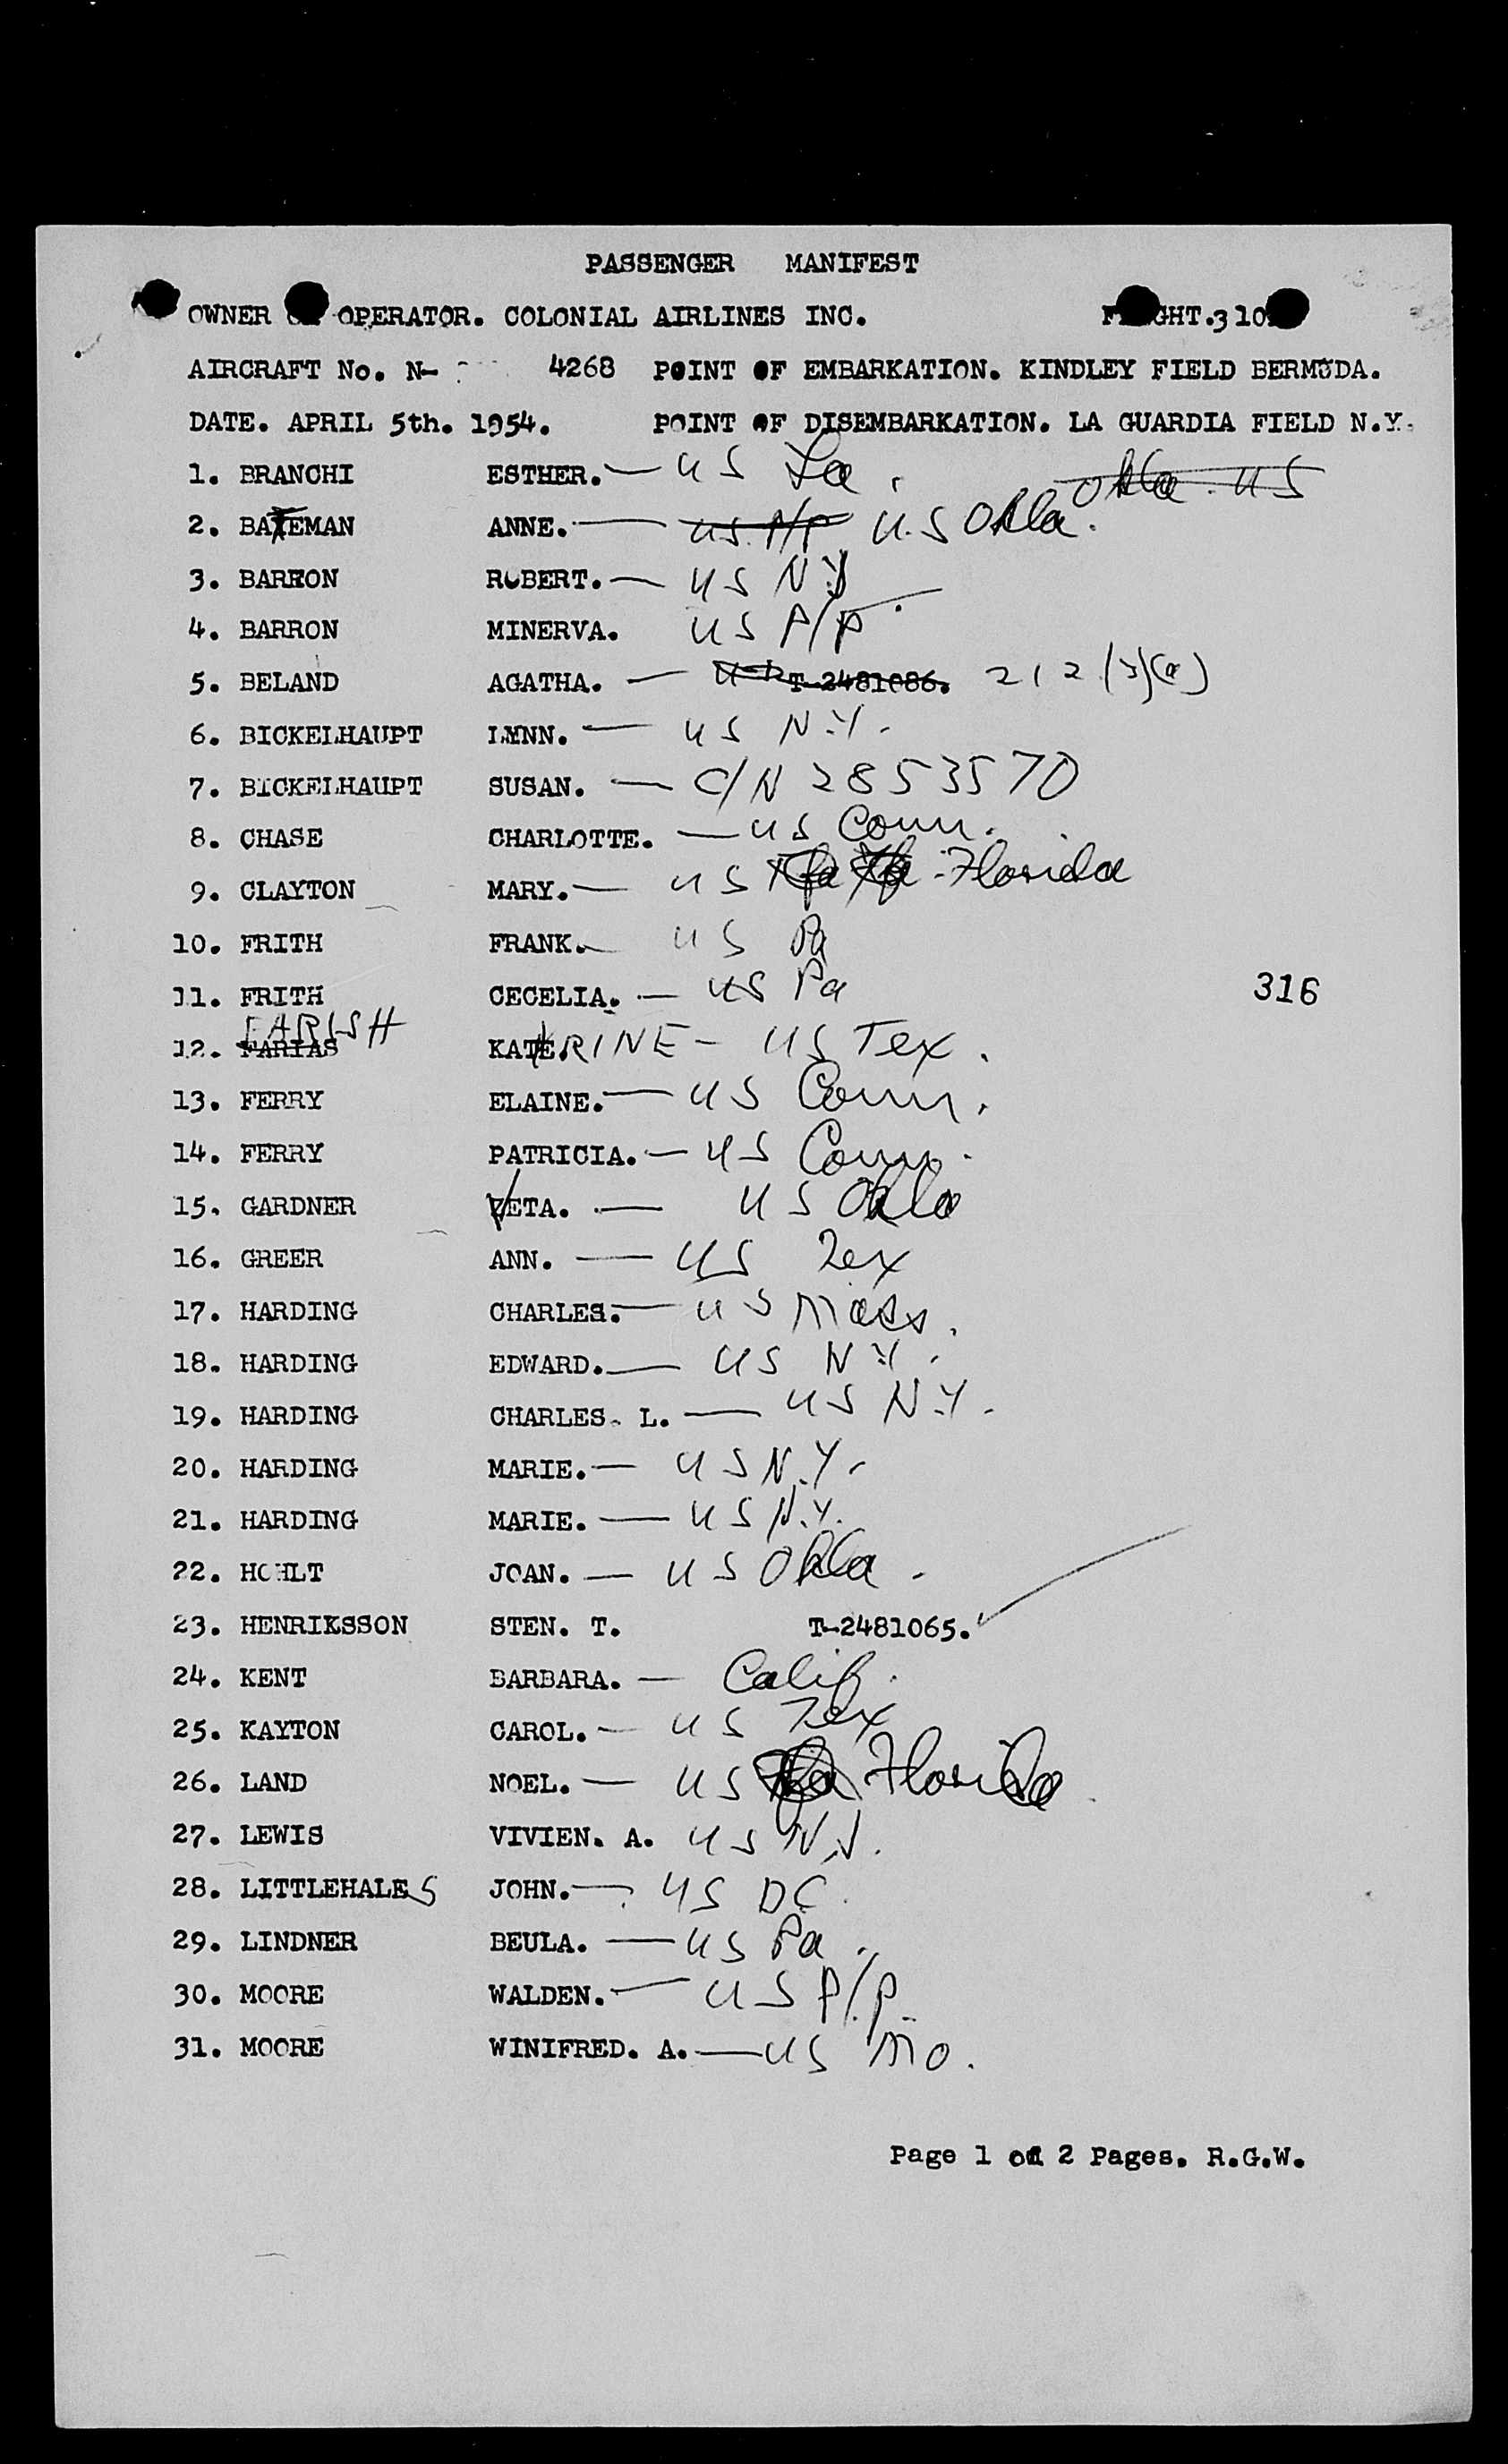 PASSENGER MANIFEST
OWNER OPERATOR. COLONIAL AIRLINES INC. 310
AIRCRAFT No. N- 4268 POINT OF EMBARKATION. KINDLEY FIELD BERMUDA.
DATE. APRIL 5th. 1954. POINT OF DISEMBARKATION. LA GUARDIA FIELD N.Y.
1. BRANCHI ESTHER. — US La. Okla. US
2. BATEMAN ANNE. — US P/P U.S Okla.
3. BARRON ROBERT. — US N.Y
4. BARRON MINERVA. US P/P
5. BELAND AGATHA. — T-2481086. 212(3)(a)
6. BICKELHAUPT LYNN. — US N.Y.
7. BICKELHAUPT SUSAN. — C/N 2853570
8. CHASE CHARLOTTE. — US Conn.
9. CLAYTON MARY. — US Florida
10. FRITH FRANK. US Pa
11. FRITH CECELIA. — US Pa
FARISH
12. FARIAS KATE.RINE - US Tex.
13. FERRY ELAINE. — US Conn.
14. FERRY PATRICIA. — US Conn.
15. GARDNER VETA. — US Okla
16. GREER ANN. — US Tex
17. HARDING CHARLES. — US Mass.
18. HARDING EDWARD. — US N.Y.
19. HARDING CHARLES. L. — US N.Y.
20. HARDING MARIE. — US N.Y.
21. HARDING MARIE. — US N.Y.
22. HOHLT JOAN. — US Okla.
23. HENRIKSSON STEN. T. T-2481065.
24. KENT BARBARA. — Calif.
25. KAYTON CAROL. — US Tex
26. LAND NOEL. — US Florida
27. LEWIS VIVIEN. A. US N.J.
28. LITTLEHALES JOHN. — US DC.
29. LINDNER BEULA. — US Pa.
30. MOORE WALDEN. — US P/P.
31. MOORE WINIFRED. A. — US Mo.
316
Page 1 of 2 Pages. R.G.W.